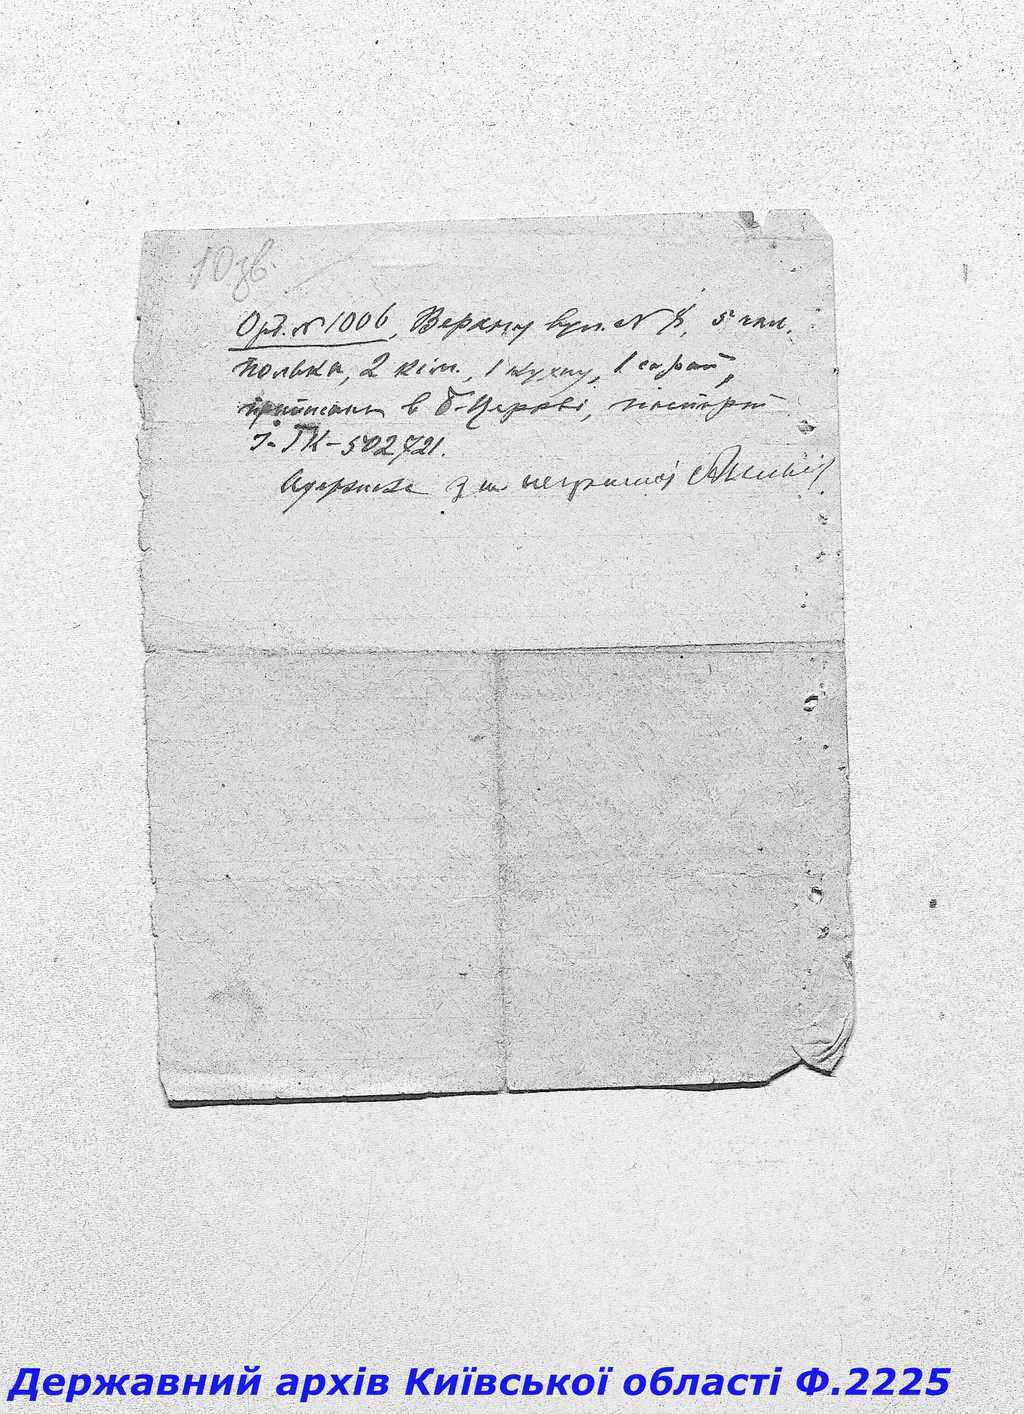 10зв.
Орд. № 1006, Верхну вул. № 8, 5 чол.
полька, 2 кім., 1 кухну, 1 сарай,
в б-Церкві, паспорт
ГК-502721.
Одержала за неграмот
Державний архів Київської області Ф.2225